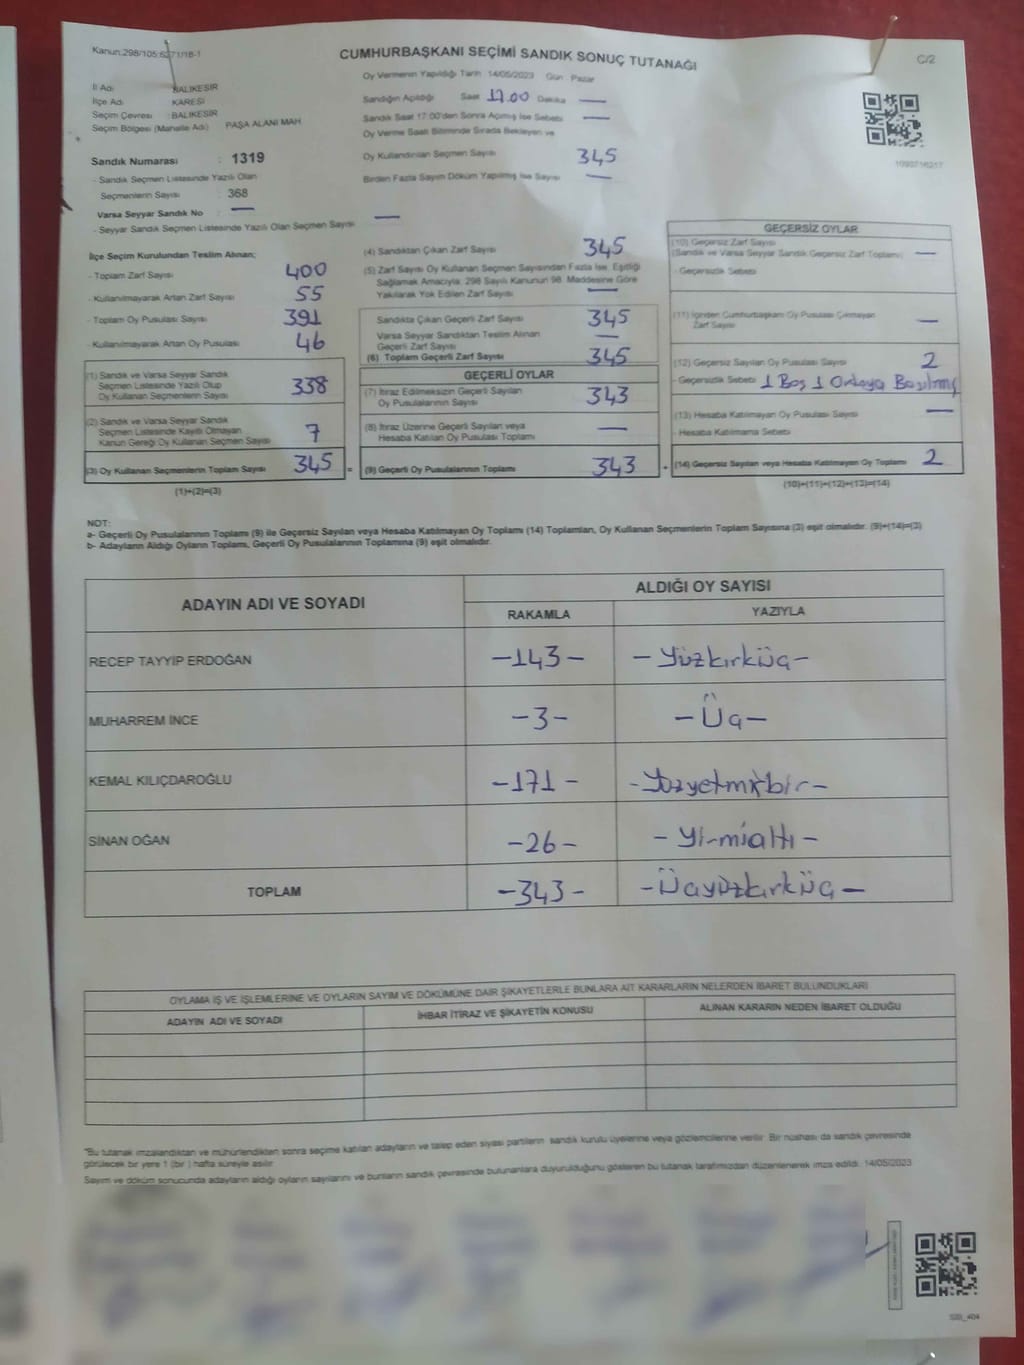 Kanun:298/105:6271/18-1
CUMHURBAŞKANI SEÇİMİ SANDIK SONUÇ TUTANAĞI
C/2
İl Adı : BALIKESİR
İlçe Adı : KARESİ
Seçim Çevresi : BALIKESİR
Seçim Bölgesi (Mahalle Adı) : PAŞA ALANI MAH
Sandık Numarası : 1319
- Sandık Seçmen Listesinde Yazılı Olan
Seçmenlerin Sayısı : 368
Varsa Seyyar Sandık No : —
- Seyyar Sandık Seçmen Listesinde Yazılı Olan Seçmen Sayısı —
Oy Vermenin Yapıldığı Tarih 14/05/2023 Gün Pazar
Sandığın Açıldığı Saat 17.00 Dakika —
Sandık Saat 17:00'den Sonra Açılmış İse Sebebi —
Oy Verme Saati Bitiminde Sırada Bekleyen ve
Oy Kullandırılan Seçmen Sayısı 345
Birden Fazla Sayım Döküm Yapılmış İse Sayısı —
1093716217
İlçe Seçim Kurulundan Teslim Alınan;
- Toplam Zarf Sayısı 400
- Kullanılmayarak Artan Zarf Sayısı 55
- Toplam Oy Pusulası Sayısı 391
- Kullanılmayarak Artan Oy Pusulası 46
(1) Sandık ve Varsa Seyyar Sandık
Seçmen Listesinde Yazılı Olup
Oy Kullanan Seçmenlerin Sayısı 338
(2) Sandık ve Varsa Seyyar Sandık
Seçmen Listesinde Kayıtlı Olmayan
Kanun Gereği Oy Kullanan Seçmen Sayısı 7
(3) Oy Kullanan Seçmenlerin Toplam Sayısı 345 =
(1)+(2)=(3)
(4) Sandıktan Çıkan Zarf Sayısı 345
(5) Zarf Sayısı Oy Kullanan Seçmen Sayısından Fazla İse, Eşitliği
Sağlamak Amacıyla; 298 Sayılı Kanunun 98. Maddesine Göre
Yakılarak Yok Edilen Zarf Sayısı —
Sandıkta Çıkan Geçerli Zarf Sayısı 345
Varsa Seyyar Sandıktan Teslim Alınan
Geçerli Zarf Sayısı —
(6) Toplam Geçerli Zarf Sayısı 345
GEÇERLİ OYLAR
(7) İtiraz Edilmeksizin Geçerli Sayılan
Oy Pusulalarının Sayısı 343
(8) İtiraz Üzerine Geçerli Sayılan veya
Hesaba Katılan Oy Pusulası Toplamı —
(9) Geçerli Oy Pusulalarının Toplamı 343 +
GEÇERSİZ OYLAR
(10) Geçersiz Zarf Sayısı
(Sandık ve Varsa Seyyar Sandık Geçersiz Zarf Toplamı) —
- Geçersizlik Sebebi
(11) İçinden Cumhurbaşkanı Oy Pusulası Çıkmayan
Zarf Sayısı —
(12) Geçersiz Sayılan Oy Pusulası Sayısı 2
- Geçersizlik Sebebi 1 Boş 1 Ortaya Basılmış
(13) Hesaba Katılmayan Oy Pusulası Sayısı —
- Hesaba Katılmama Sebebi
(14) Geçersiz Sayılan veya Hesaba Katılmayan Oy Toplamı 2
(10)+(11)+(12)+(13)=(14)
NOT:
a- Geçerli Oy Pusulalarının Toplamı (9) ile Geçersiz Sayılan veya Hesaba Katılmayan Oy Toplamı (14) Toplamları, Oy Kullanan Seçmenlerin Toplam Sayısına (3) eşit olmalıdır. (9)+(14)=(3)
b- Adayların Aldığı Oyların Toplamı, Geçerli Oy Pusulalarının Toplamına (9) eşit olmalıdır.
ADAYIN ADI VE SOYADI
ALDIĞI OY SAYISI
RAKAMLA YAZIYLA
RECEP TAYYİP ERDOĞAN -143- -Yüzkırküç-
MUHARREM İNCE -3- -Üç-
KEMAL KILIÇDAROĞLU -171- -Yüzyetmişbir-
SİNAN OĞAN -26- -Yirmialtı-
TOPLAM -343- -Üçyüzkırküç-
OYLAMA İŞ VE İŞLEMLERİNE VE OYLARIN SAYIM VE DÖKÜMÜNE DAİR ŞİKAYETLERLE BUNLARA AİT KARARLARIN NELERDEN İBARET BULUNDUKLARI
ADAYIN ADI VE SOYADI İHBAR İTİRAZ VE ŞİKAYETİN KONUSU ALINAN KARARIN NEDEN İBARET OLDUĞU
"Bu tutanak imzalandıktan ve mühürlendikten sonra seçime katılan adayların ve talep eden siyasi partilerin sandık kurulu üyelerine veya gözlemcilerine verilir. Bir nüshası da sandık çevresinde
görülecek bir yere 1 (bir) hafta süreyle asılır.
Sayım ve döküm sonucunda adayların aldığı oyların sayılarını ve bunların sandık çevresinde bulunanlara duyurulduğunu gösteren bu tutanak tarafımızdan düzenlenerek imza edildi. 14/05/2023